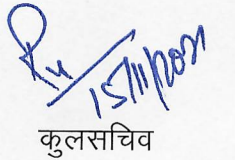 15/11/2021
कुलसचिव